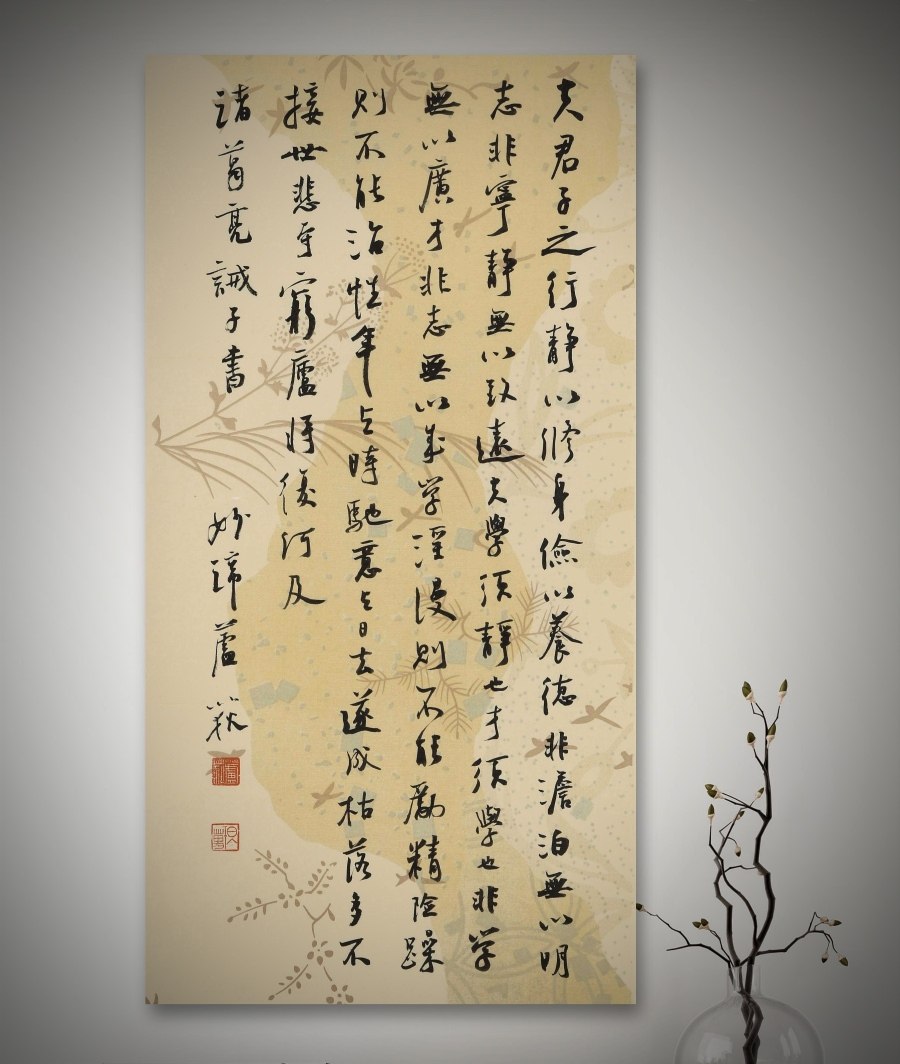 夫君子之行靜以修身儉以養德非澹泊無以明
志非寧靜無以致遠夫學須靜也才須學也非学
無以廣才非志無以成学淫漫則不能勵精險躁
則不能治性年与時馳意与日去遂成枯落多不
接世悲守窮廬将復何及
諸葛亮誡子書 妙諦蘆荻